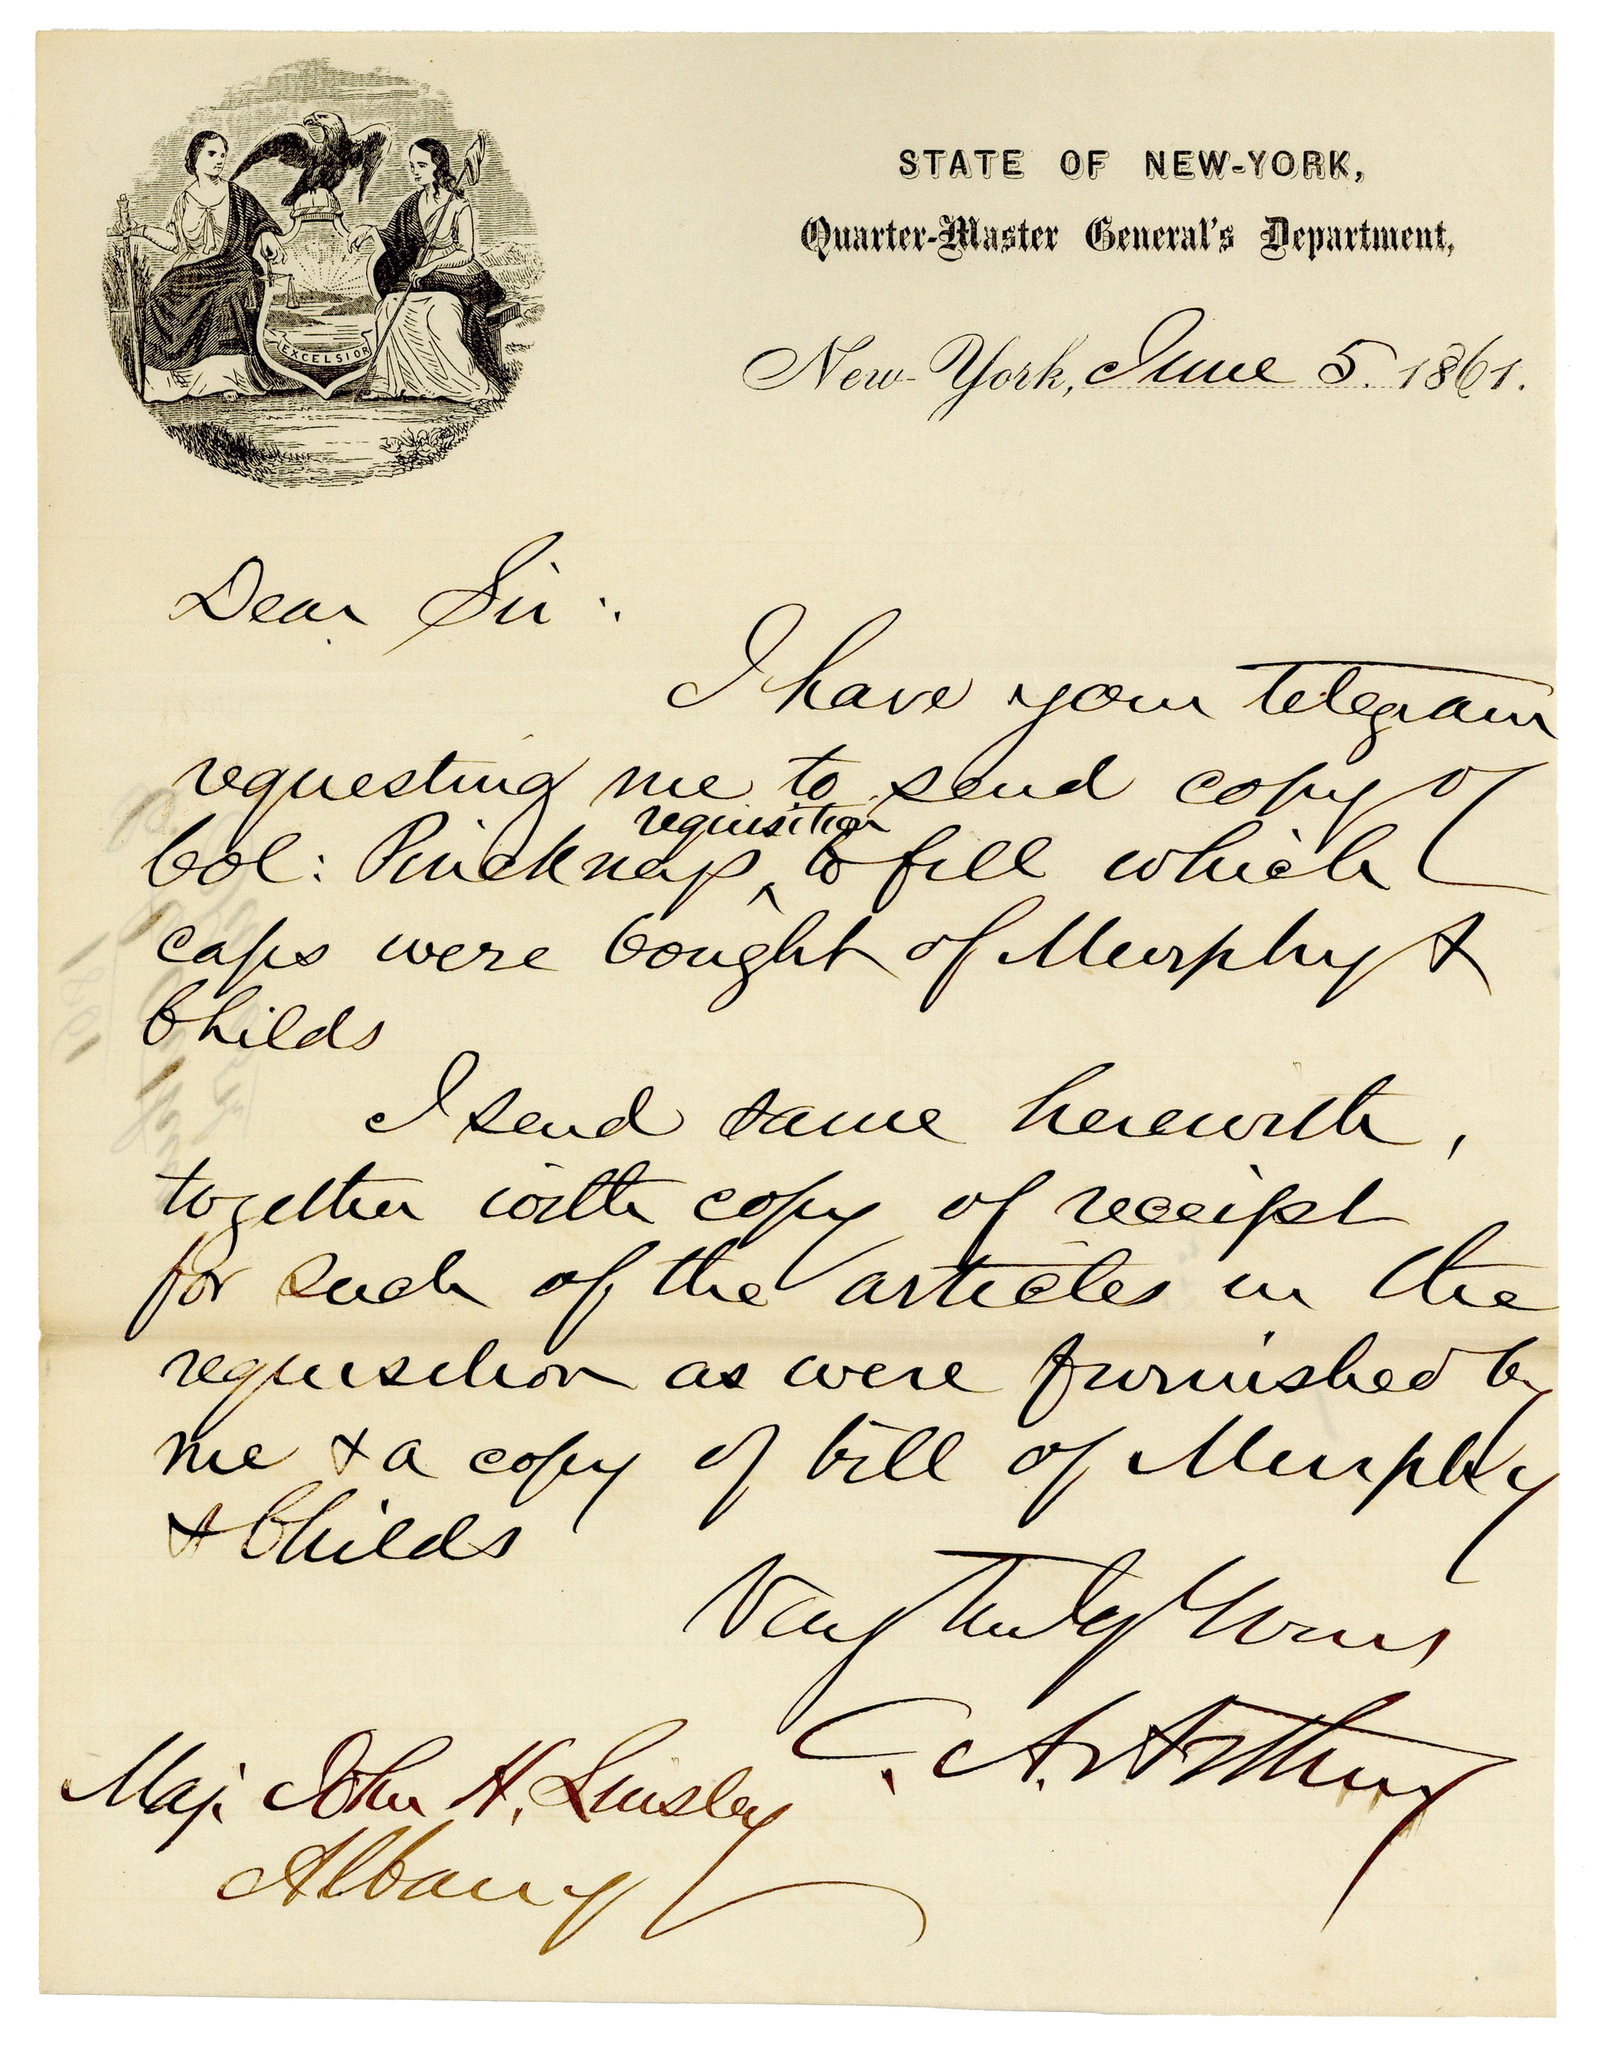 EXCELSIOR
STATE OF NEW-YORK,
Quarter-Master General's Department,
New-York, June 5. 1861.
Dear Sir:
I have your telegram
requesting me to send copy of
requisition
Col: Pinckney, ‸ to fill which
caps were bought of Murphy &
Childs
I send same herewith,
together with copy of receipt
for such of the articles in the
requisition as were furnished by
me & a copy of bill of Murphy
& Childs
Very truly Yours
C. A. Arthur
Maj. John H. Linsley
Albany
1861